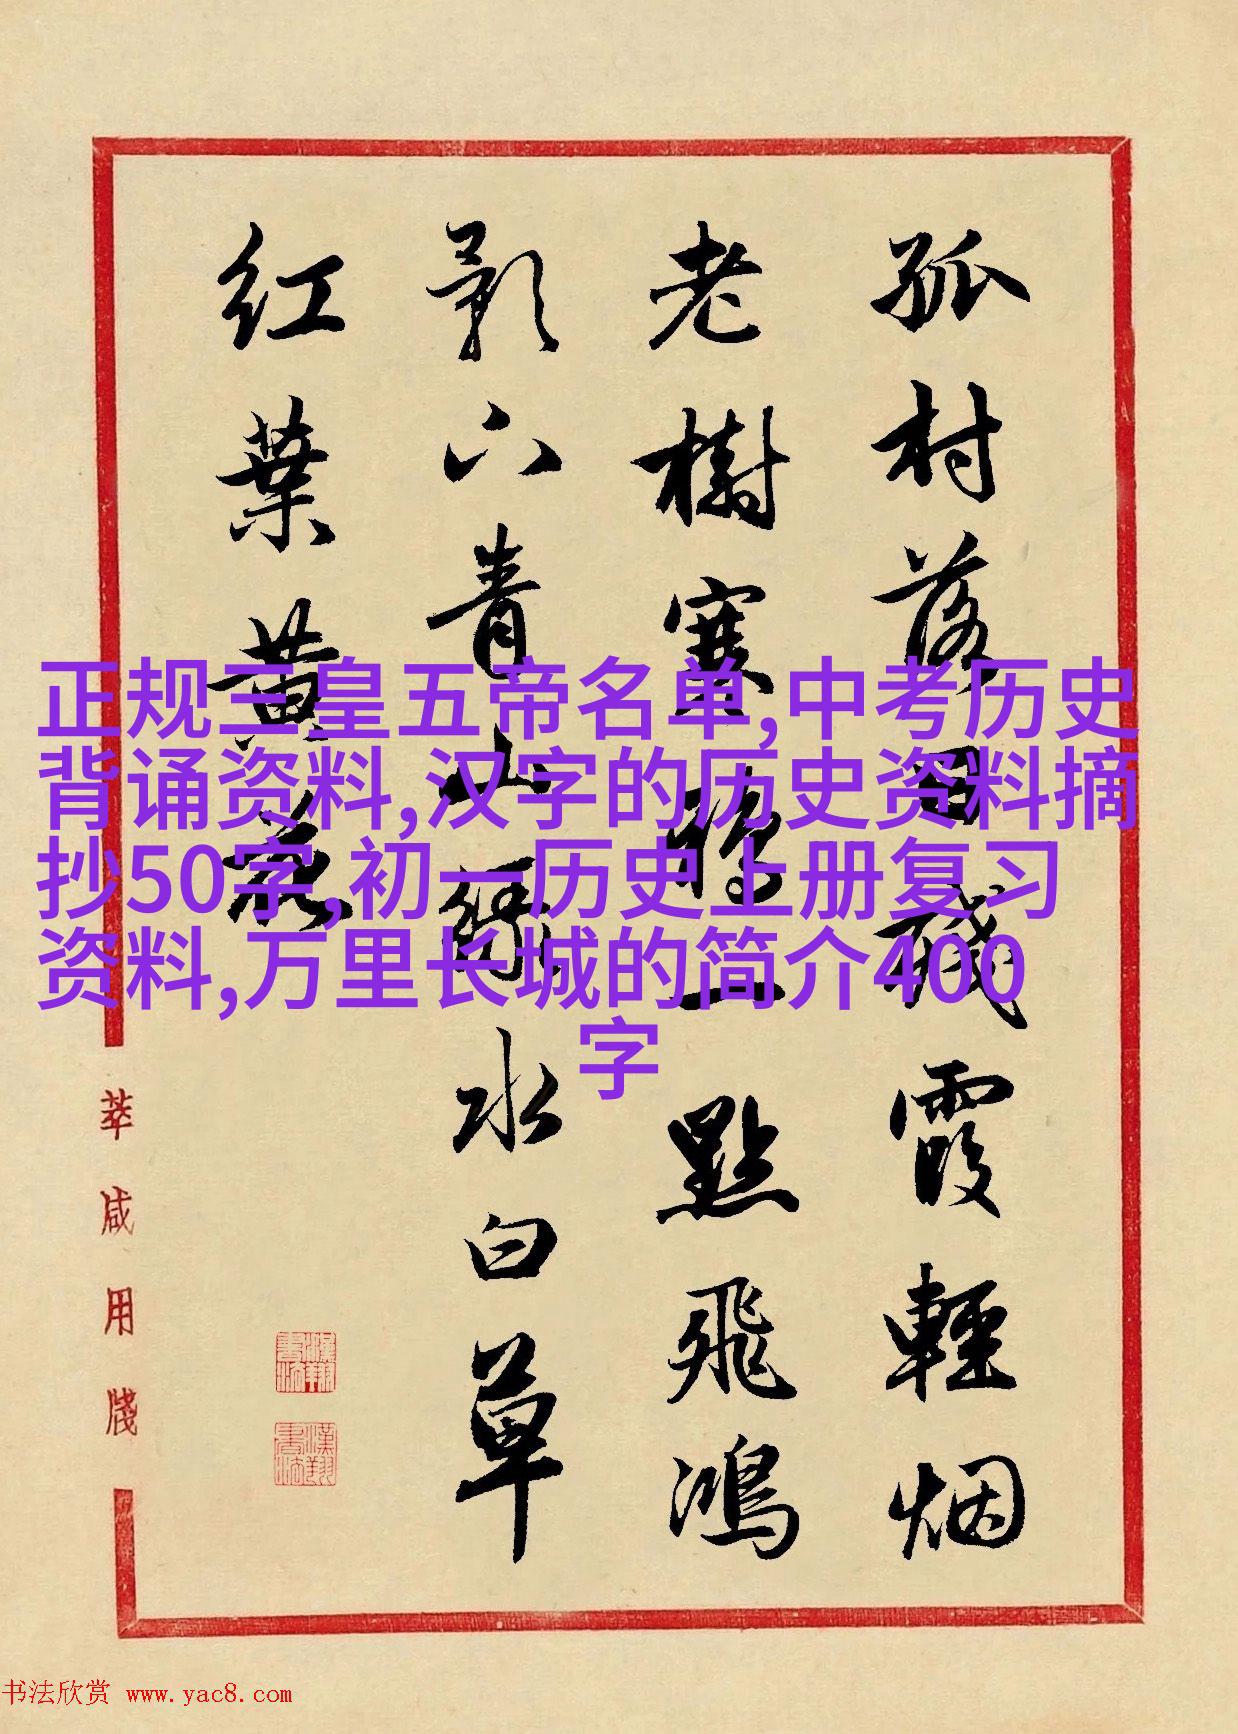 孤村落日殘霞輕烟
老樹寒鴉一點飛鴻
影下青山綠水白草
紅葉黃花
正规三皇五帝名单,中考历史
背诵资料,汉字的历史资料摘
抄50字,初一历史上册复习
资料,万里长城的简介400
字
莘咸用牋
漢翔書法
漢翔書法
书法欣赏 www.yac8.com